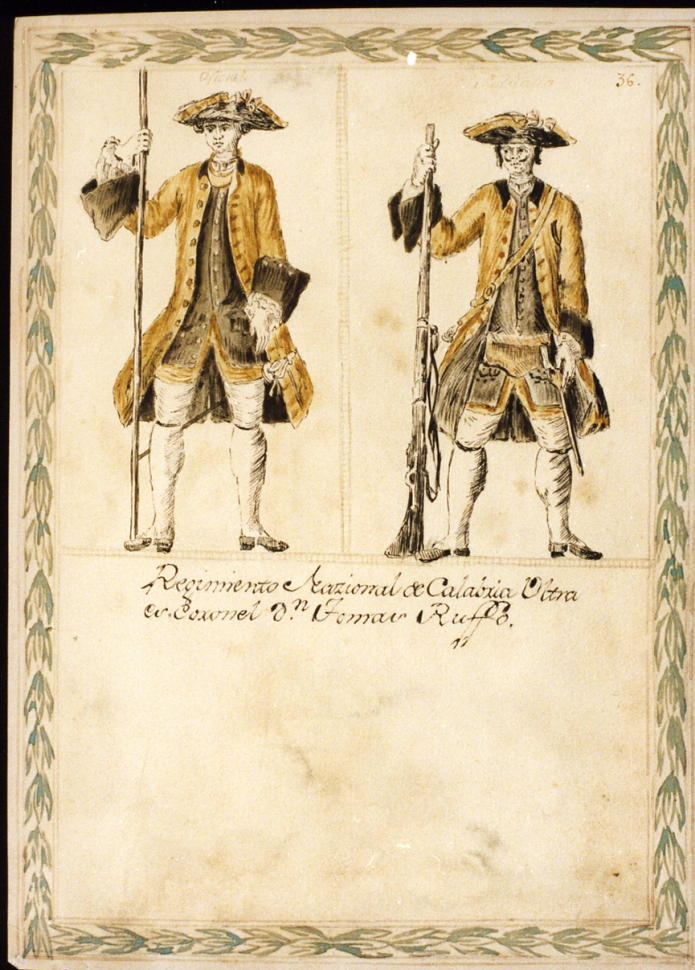 Oficial
Soldado
36.
Regimiento Nazional de Calabria Vltra
es Coronel D.ⁿ Tomas Ruffo.